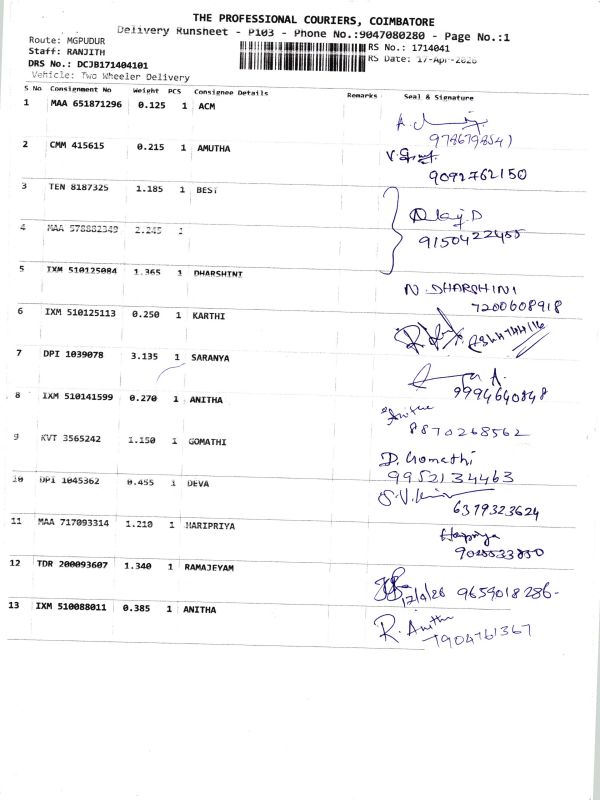 THE PROFESSIONAL COURIERS, COIMBATORE
Delivery Runsheet - P103 - Phone No.:9047080280 - Page No.:1
Route: MGPUDUR
RS No.: 1714041
Staff: RANJITH
RS Date: 17-Apr-2026
DRS No.: DCJB171404101
Vehicle: Two Wheeler Delivery
S No Consignment No Weight PCS Consignee Details Remarks Seal & Signature
1 MAA 651871296 0.125 1 ACM
9786798541
2 CMM 415615 0.215 1 AMUTHA
9092762150
3 TEN 8187325 1.185 1 BEST
4 MAA 578882349 2.245 1
9150422455
5 IXM 510125084 1.365 1 DHARSHINI
N. DHARSHINI
7200608918
6 IXM 510125113 0.250 1 KARTHI
7 DPI 1039078 3.135 1 SARANYA
9994640848
8 IXM 510141599 0.270 1 ANITHA
8870268562
9 KVT 3565242 1.150 1 GOMATHI
D. Gomathi
9952134463
10 DPI 1045362 0.455 1 DEVA
6379323624
11 MAA 717093314 1.210 1 HARIPRIYA
12 TDR 200093607 1.340 1 RAMAJEYAM
9659018286-
13 IXM 510088011 0.385 1 ANITHA
R. Anitha
7904761367